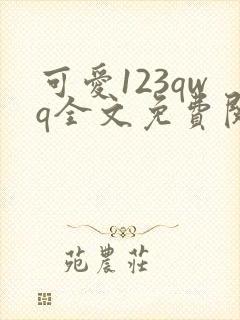 可愛123qw
q全文免費閱
苑農莊